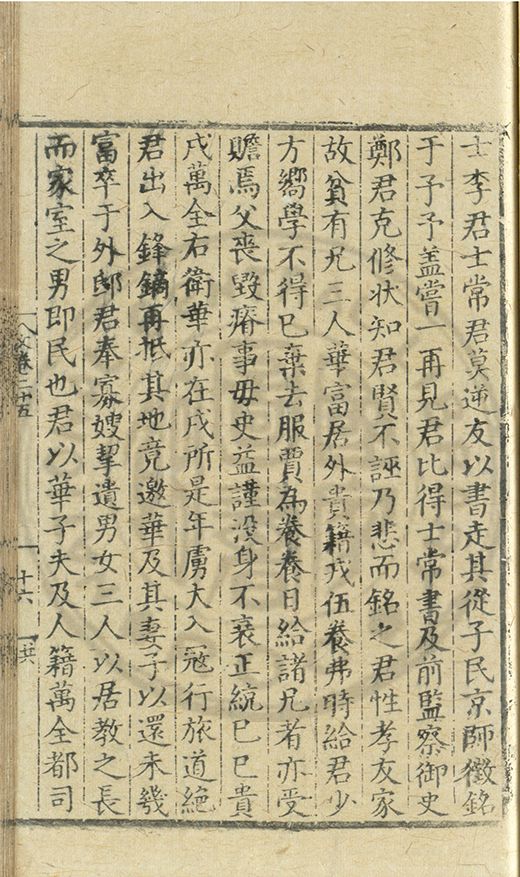 士李君士常君莫逆友以書走其從子民京師徵銘
于予予盖嘗一再見君比得士常書及前監察御史
鄭君克修状知君賢不誣乃悲而銘之君性孝友家
故貧有兄三人華富居外貴籍戎伍養弗時給君少
方嚮學不得已棄去服賈為養養日給諸兄者亦受
贍焉父喪毀瘠事毋史益謹没身不衰正統己巳貴
戍萬全右衛華亦在戍所是年虜大入冦行旅道絶
君出入鋒鏑再抵其地竟邀華及其妻子以還未幾
富卒于外邸君奉寡嫂挈遺男女三人以居教之長
而家室之男即民也君以華子夫及人籍萬全都司
文卷二十五
十六